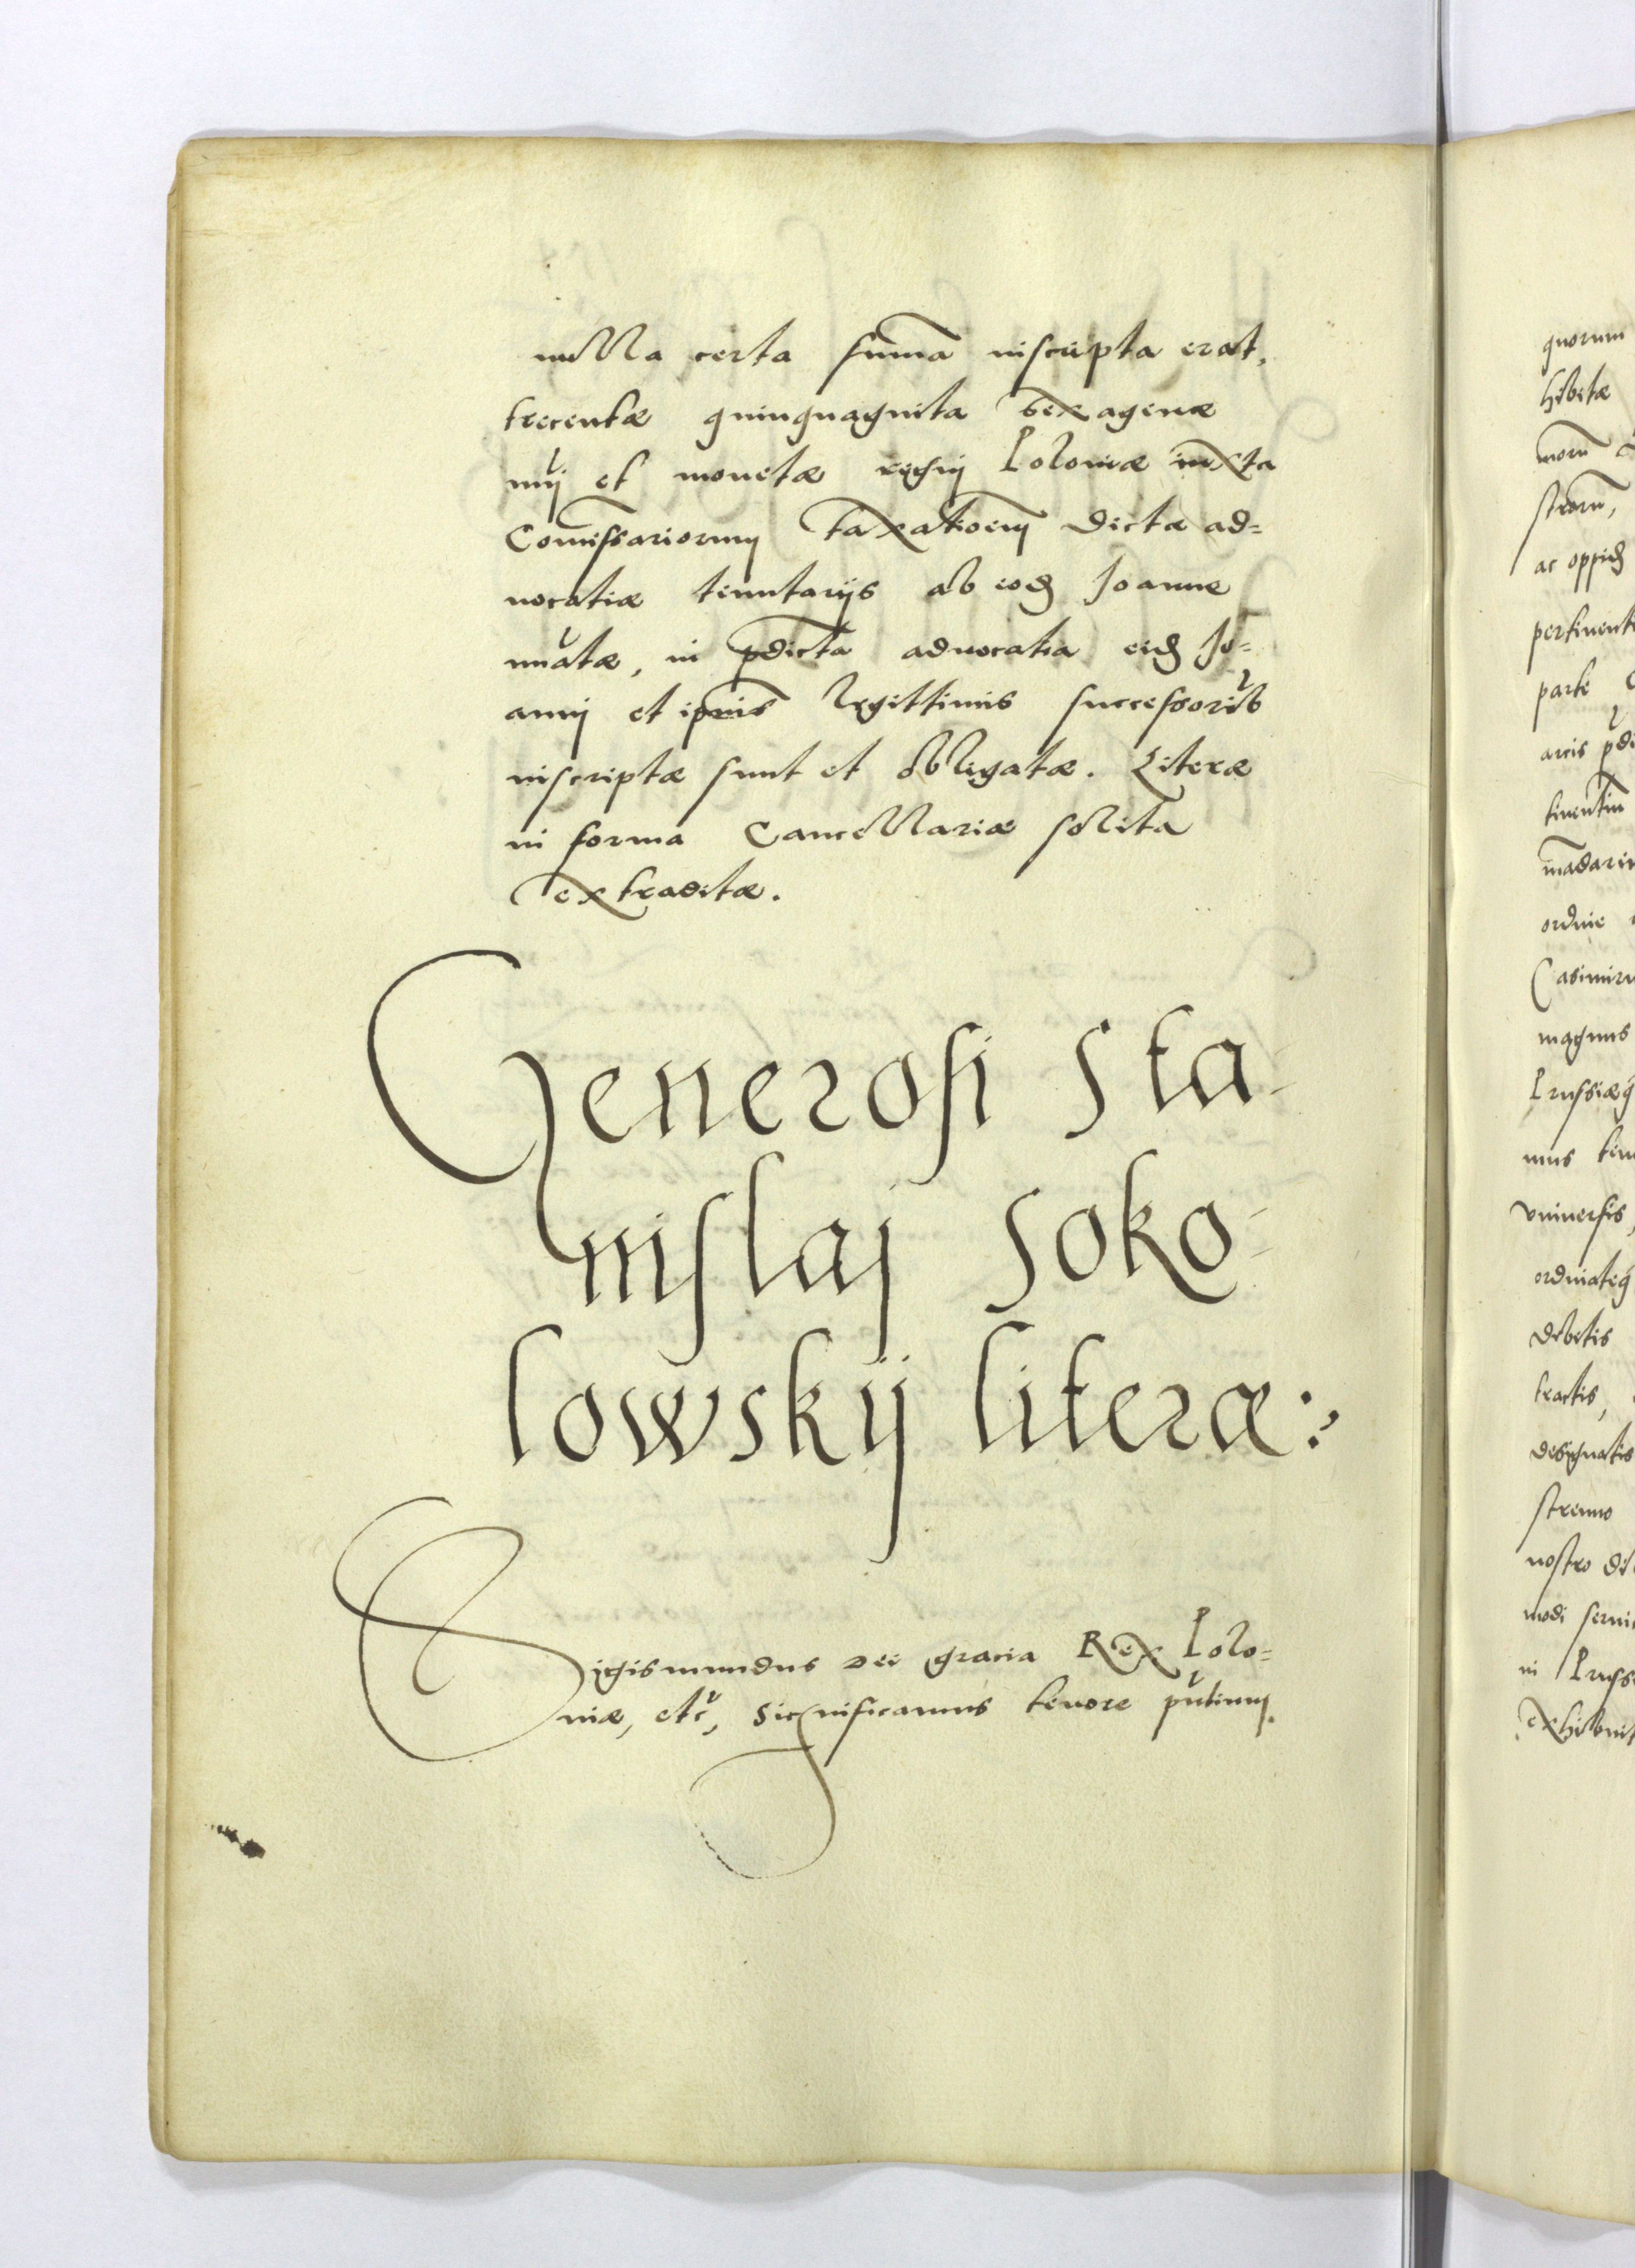 nulla certa sum̄a inscripta erat,
trecentæ quinquaginta sexagenæ
nu͛i et monetæ regnij Poloniæ iuxta
Com̄issariorum taxatioem̄ dictæ ad=
vocatiæ tenutarijs ab eod Joanne
nu͛atæ, in p̄dicta advocatia eid Jo=
anni et ip̄ius legittimis successorib
inscriptæ sunt et obligatæ. Literæ
in forma Cancellariæ solita
extraditæ.
Generosi Sta-
nislaj Soko-
lowskij literæ:
Sigismundus Dei gracia Rex Polo=
niæ, etc͛, Significamus tenore pn͛tium.
quorum
hibitæ
strorū,
ac oppid
pertinenti
parte
arcis p͛di
tinentiū
mādarin
ordine
Casimiru
magnus
Prussiæq
mus
Universis,
ordinateq
debetis
tractis,
designatis
strenuo
nostro
modi servi
in Prussi
exhibuit